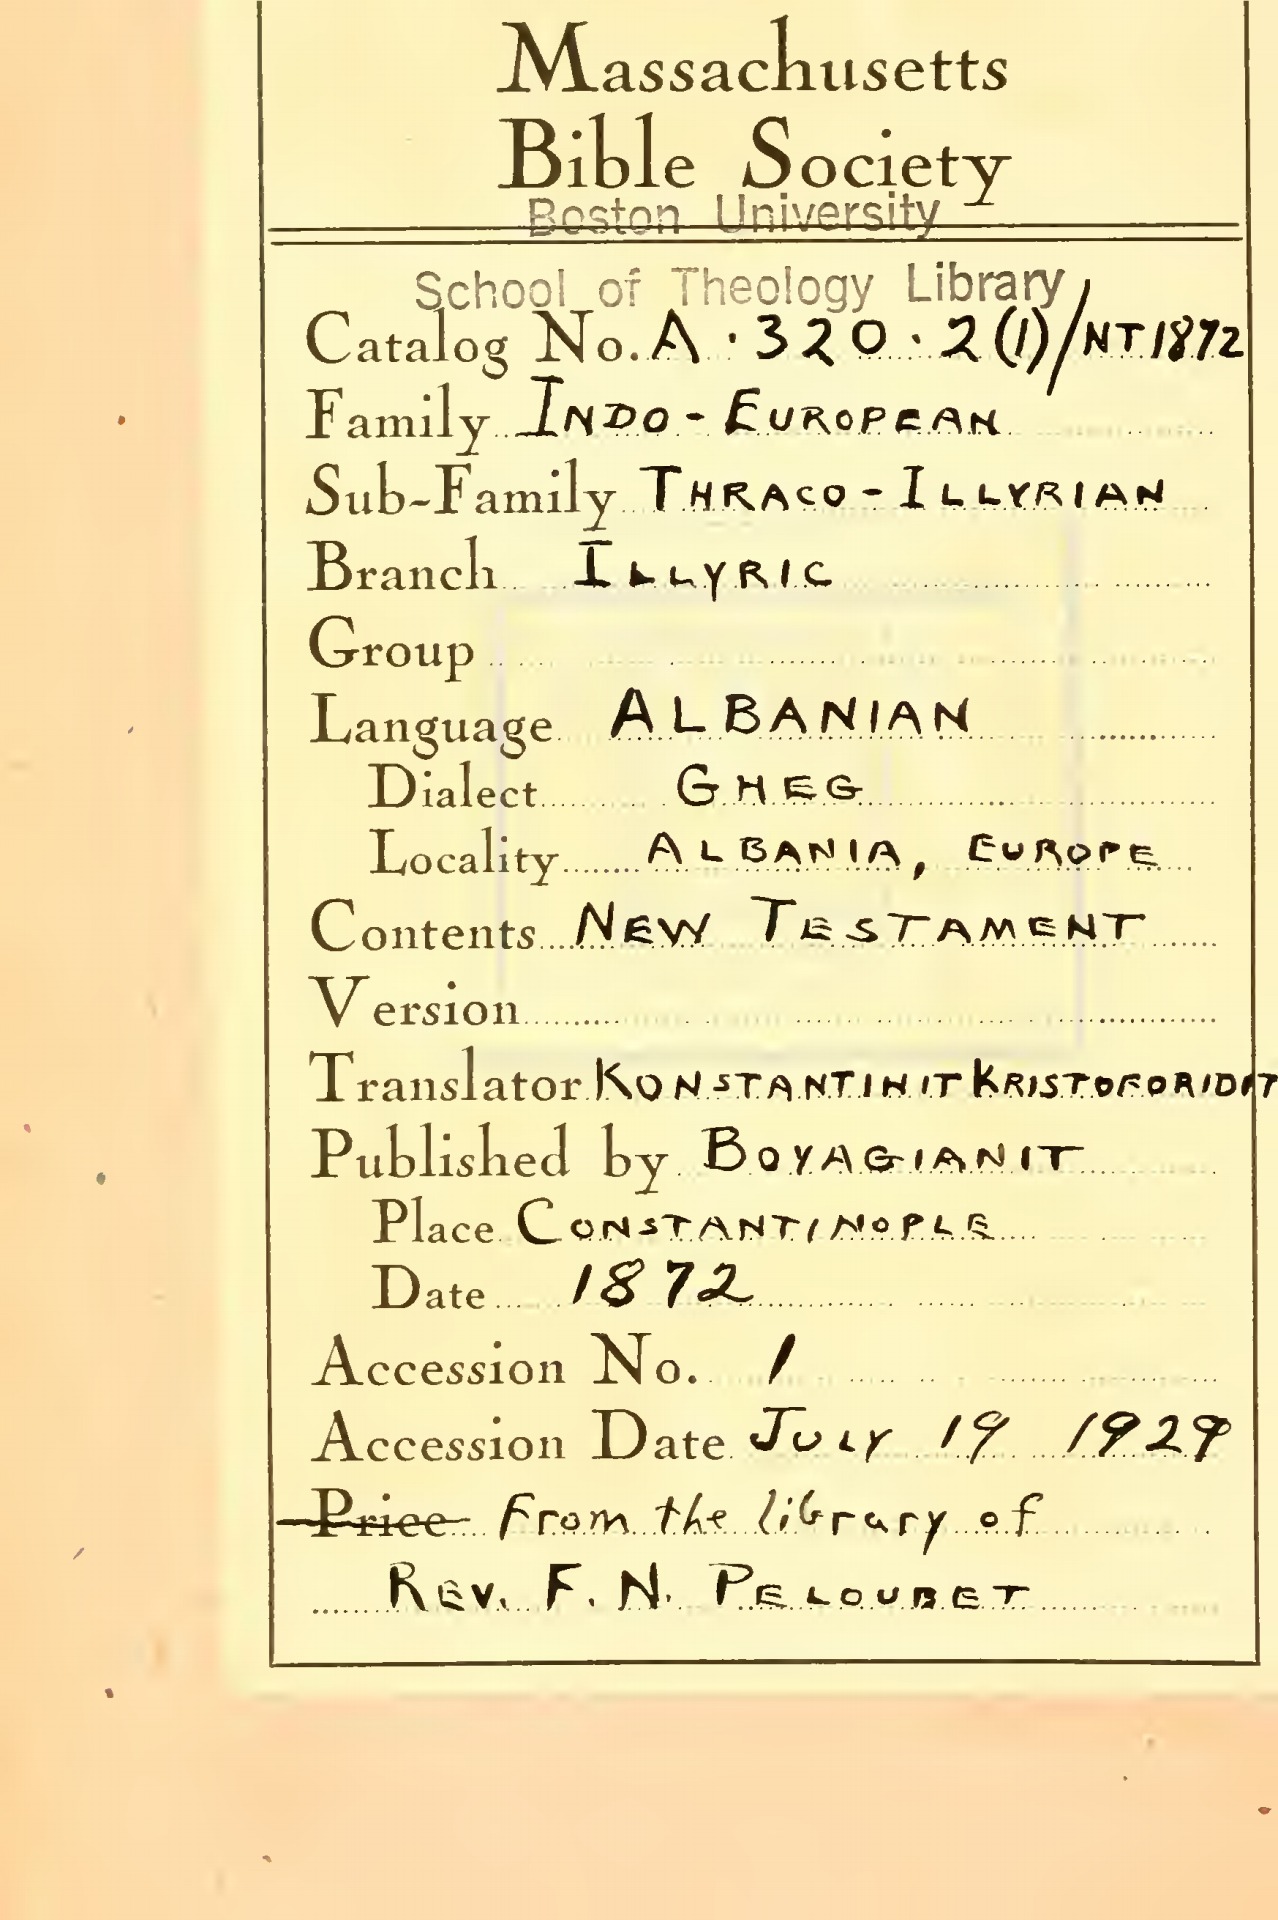 Massachusetts
Bible Society
Boston University
School of Theology Library
Catalog No. A · 320 · 2(1)/NT1872
Family Indo-European
Sub-Family Thraco-Illyrian
Branch Illyric
Group
Language Albanian
Dialect Gheg
Locality Albania, Europe
Contents New Testament
Version
Translator Konstantinit Kristoforidit
Published by Boyagianit
Place Constantinople
Date 1872
Accession No. 1
Accession Date July 19 1929
Price From the library of
Rev. F. N. Peloubet